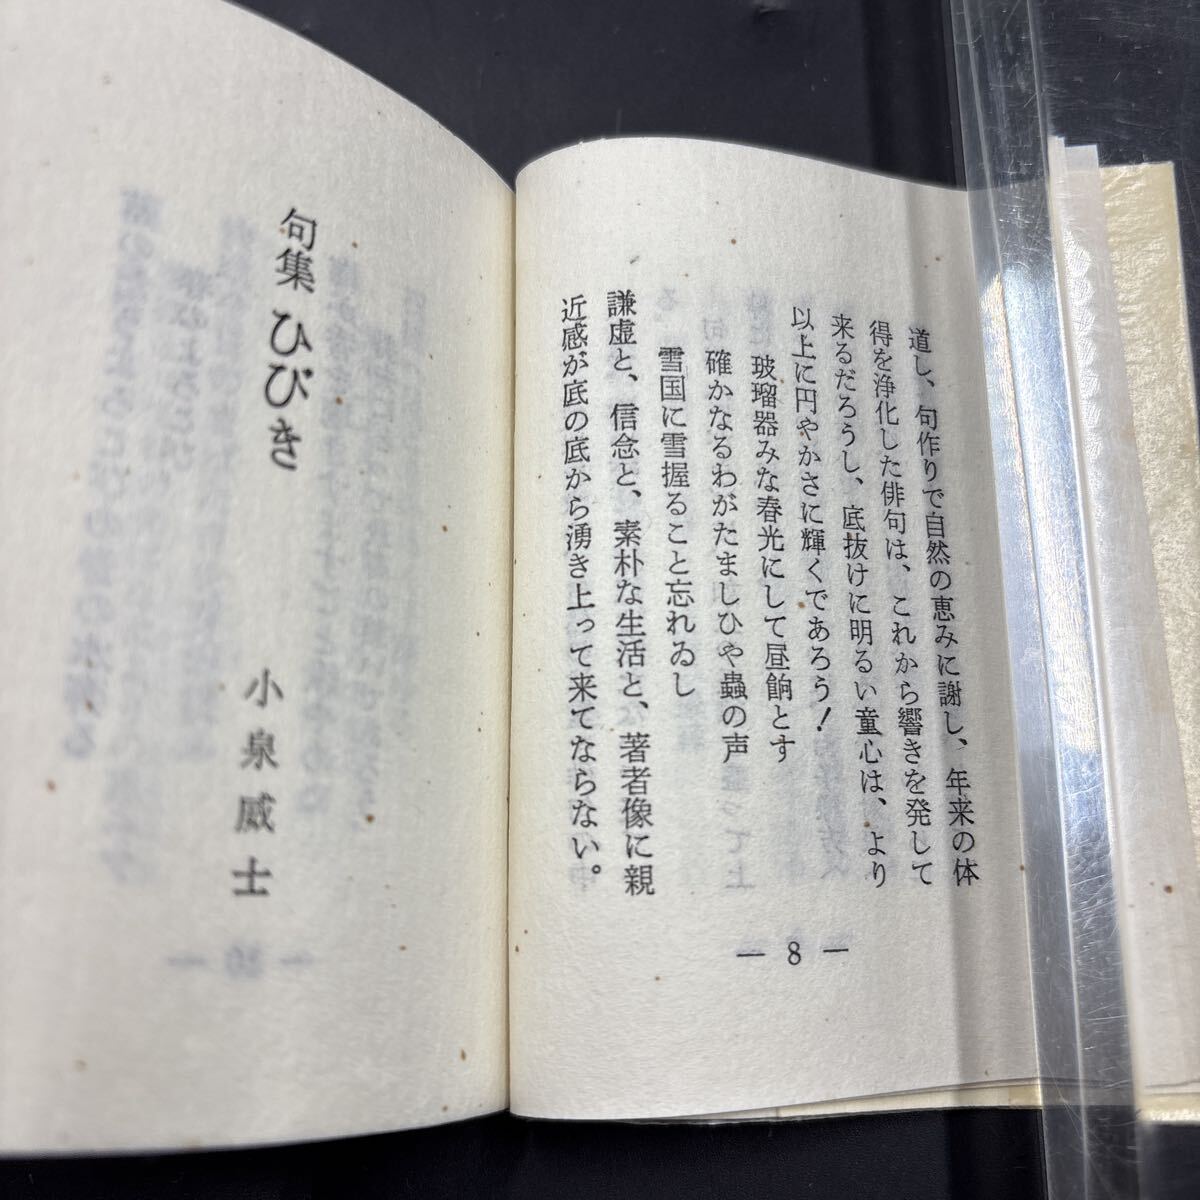 道し、句作りで自然の恵みに謝し、年来の体
得を浄化した俳句は、これから響きを発して
来るだろうし、底抜けに明るい童心は、より
以上に円やかさに輝くであろう！
玻瑠器みな春光にして昼餉とす
確かなるわがたましひや蟲の声
雪国に雪握ること忘れゐし
謙虚と、信念と、素朴な生活と、著者像に親
近感が底の底から湧き上って来てならない。
— 8 —
句集 ひびき
小泉威士